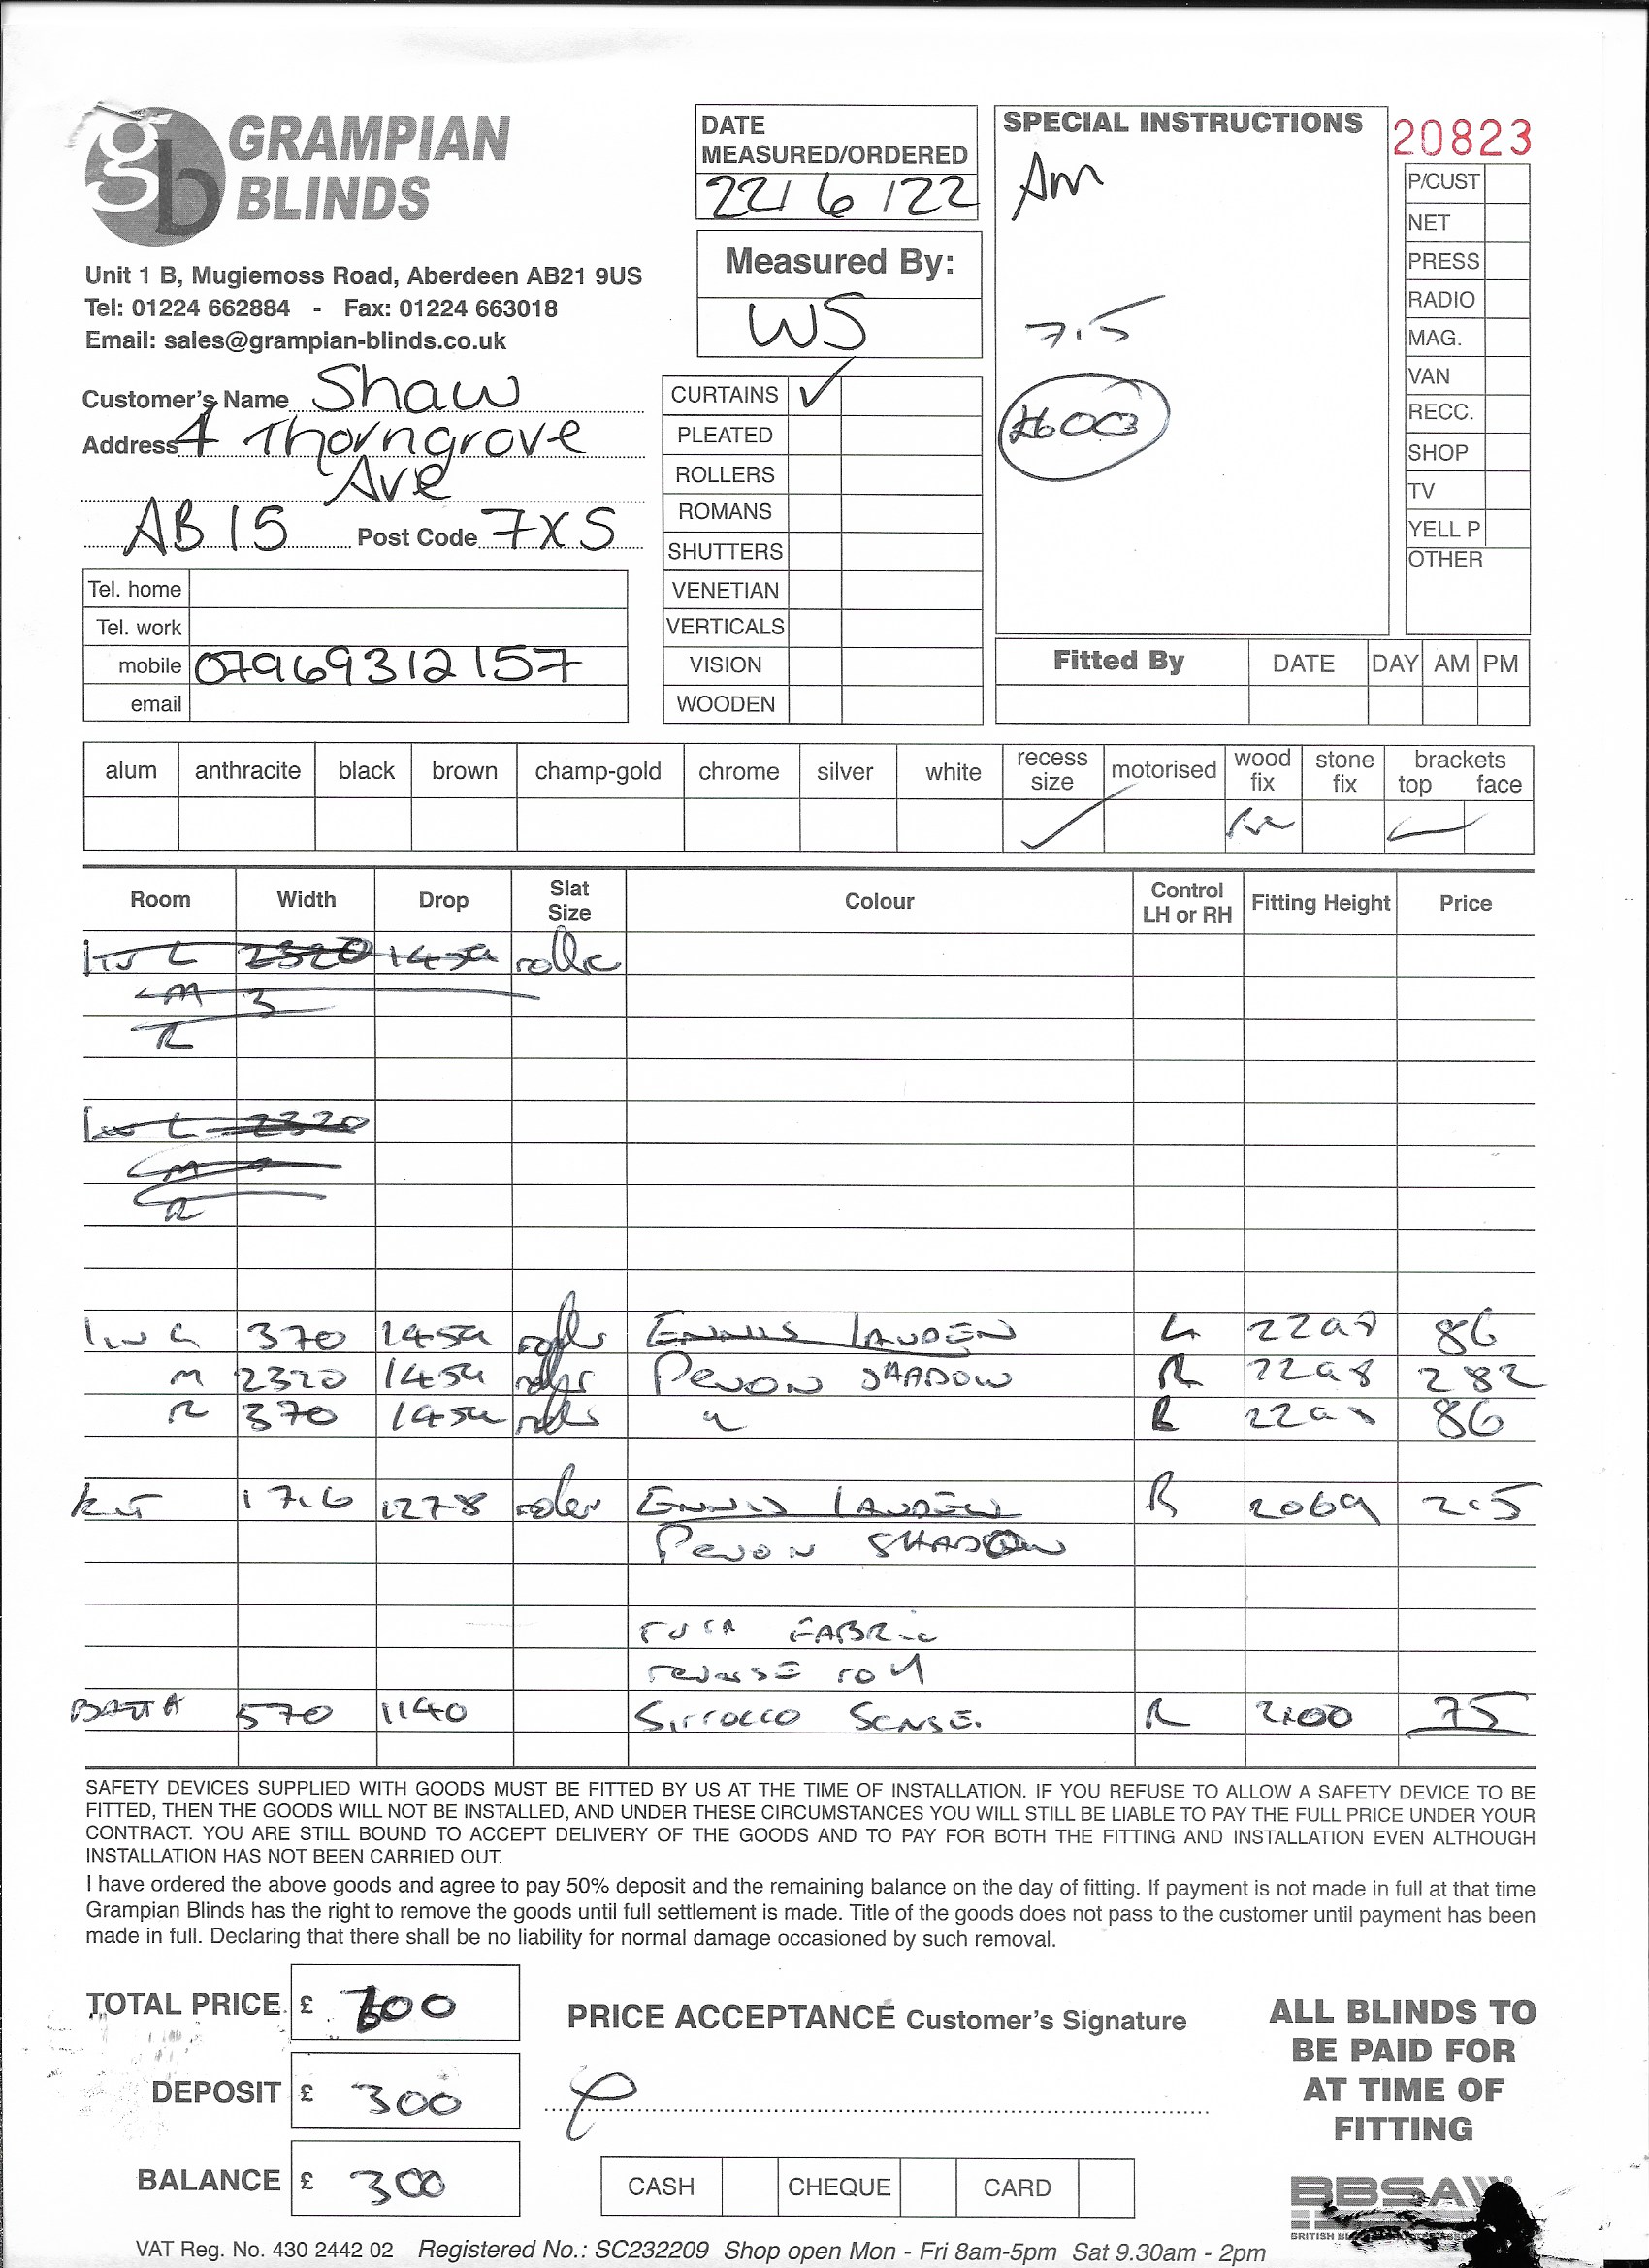 GRAMPIAN
BLINDS
Unit 1 B, Mugiemoss Road, Aberdeen AB21 9US
Tel: 01224 662884 - Fax: 01224 663018
Email: sales@grampian-blinds.co.uk
Customer's Name Shaw
Address 4 Thorngrove
Ave
AB15 Post Code 7XS
Tel. home
Tel. work
mobile 07969312157
email
DATE
MEASURED/ORDERED
22/6/22
Measured By:
WS
CURTAINS ✓
PLEATED
ROLLERS
ROMANS
SHUTTERS
VENETIAN
VERTICALS
VISION
WOODEN
SPECIAL INSTRUCTIONS
Am
7.5
£600
20823
P/CUST
NET
PRESS
RADIO
MAG.
VAN
RECC.
SHOP
TV
YELL P
OTHER
Fitted By DATE DAY AM PM
alum anthracite black brown champ-gold chrome silver white recess size motorised wood fix stone fix brackets top face
Room Width Drop Slat Size Colour Control LH or RH Fitting Height Price
L 2320 1459 roller
M
R
L 2320
M
R
370 1459 roller L 2298 86
M 2320 1459 roller SHADOW R 2298 282
R 370 1459 roller " R 2298 86
Kit 1716 1278 roller R 2069 215
SHADOW
FABRIC
reverse roll
BATH 570 1140 Sirrocco SENSE. R 2100 75
SAFETY DEVICES SUPPLIED WITH GOODS MUST BE FITTED BY US AT THE TIME OF INSTALLATION. IF YOU REFUSE TO ALLOW A SAFETY DEVICE TO BE
FITTED, THEN THE GOODS WILL NOT BE INSTALLED, AND UNDER THESE CIRCUMSTANCES YOU WILL STILL BE LIABLE TO PAY THE FULL PRICE UNDER YOUR
CONTRACT. YOU ARE STILL BOUND TO ACCEPT DELIVERY OF THE GOODS AND TO PAY FOR BOTH THE FITTING AND INSTALLATION EVEN ALTHOUGH
INSTALLATION HAS NOT BEEN CARRIED OUT.
I have ordered the above goods and agree to pay 50% deposit and the remaining balance on the day of fitting. If payment is not made in full at that time
Grampian Blinds has the right to remove the goods until full settlement is made. Title of the goods does not pass to the customer until payment has been
made in full. Declaring that there shall be no liability for normal damage occasioned by such removal.
TOTAL PRICE £ 600
DEPOSIT £ 300
BALANCE £ 300
PRICE ACCEPTANCE Customer's Signature
CASH CHEQUE CARD
ALL BLINDS TO
BE PAID FOR
AT TIME OF
FITTING
BBSA
BRITISH
VAT Reg. No. 430 2442 02 Registered No.: SC232209 Shop open Mon - Fri 8am-5pm Sat 9.30am - 2pm